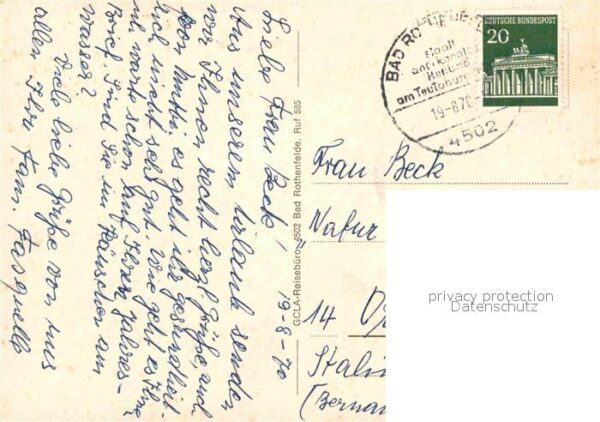 19-8-70
Liebe Frau Beck!
Aus unserem Urlaub senden
wir Ihnen recht herzl. Grüße, und
von Mutti, es geht ihr gesundheit-
lich nicht sehr gut. Wie geht es Ihnen
ich warte schon auf Ihren Jahres-
Brief. Sind Sie im Häuschen am
Wasser?
Viele liebe Grüße von uns
allen Ihre Fam.
GCLA-Reisebüro 4502 Bad Rothenfelde, Ruf 585
BAD ROTHENFELDE
am Teutoburger
19-8.70
4502
DEUTSCHE BUNDESPOST
20
Frau Beck
Natur
14
Stalin
(Bernau
privacy protection
Datenschutz